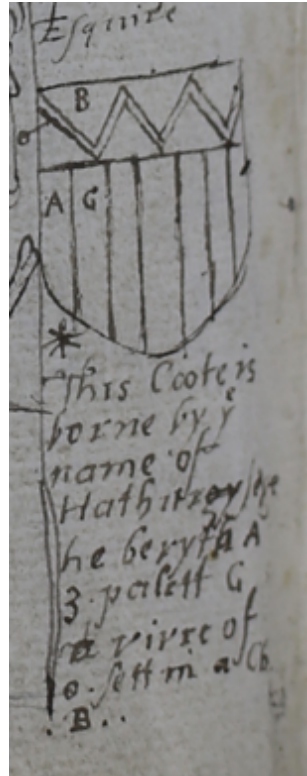 Esquire
B
o
A G
This Coote is
borne by yᵉ
name of
he beryth A
3. palett G
a vivre of
o. sett in a Ch
. B . .